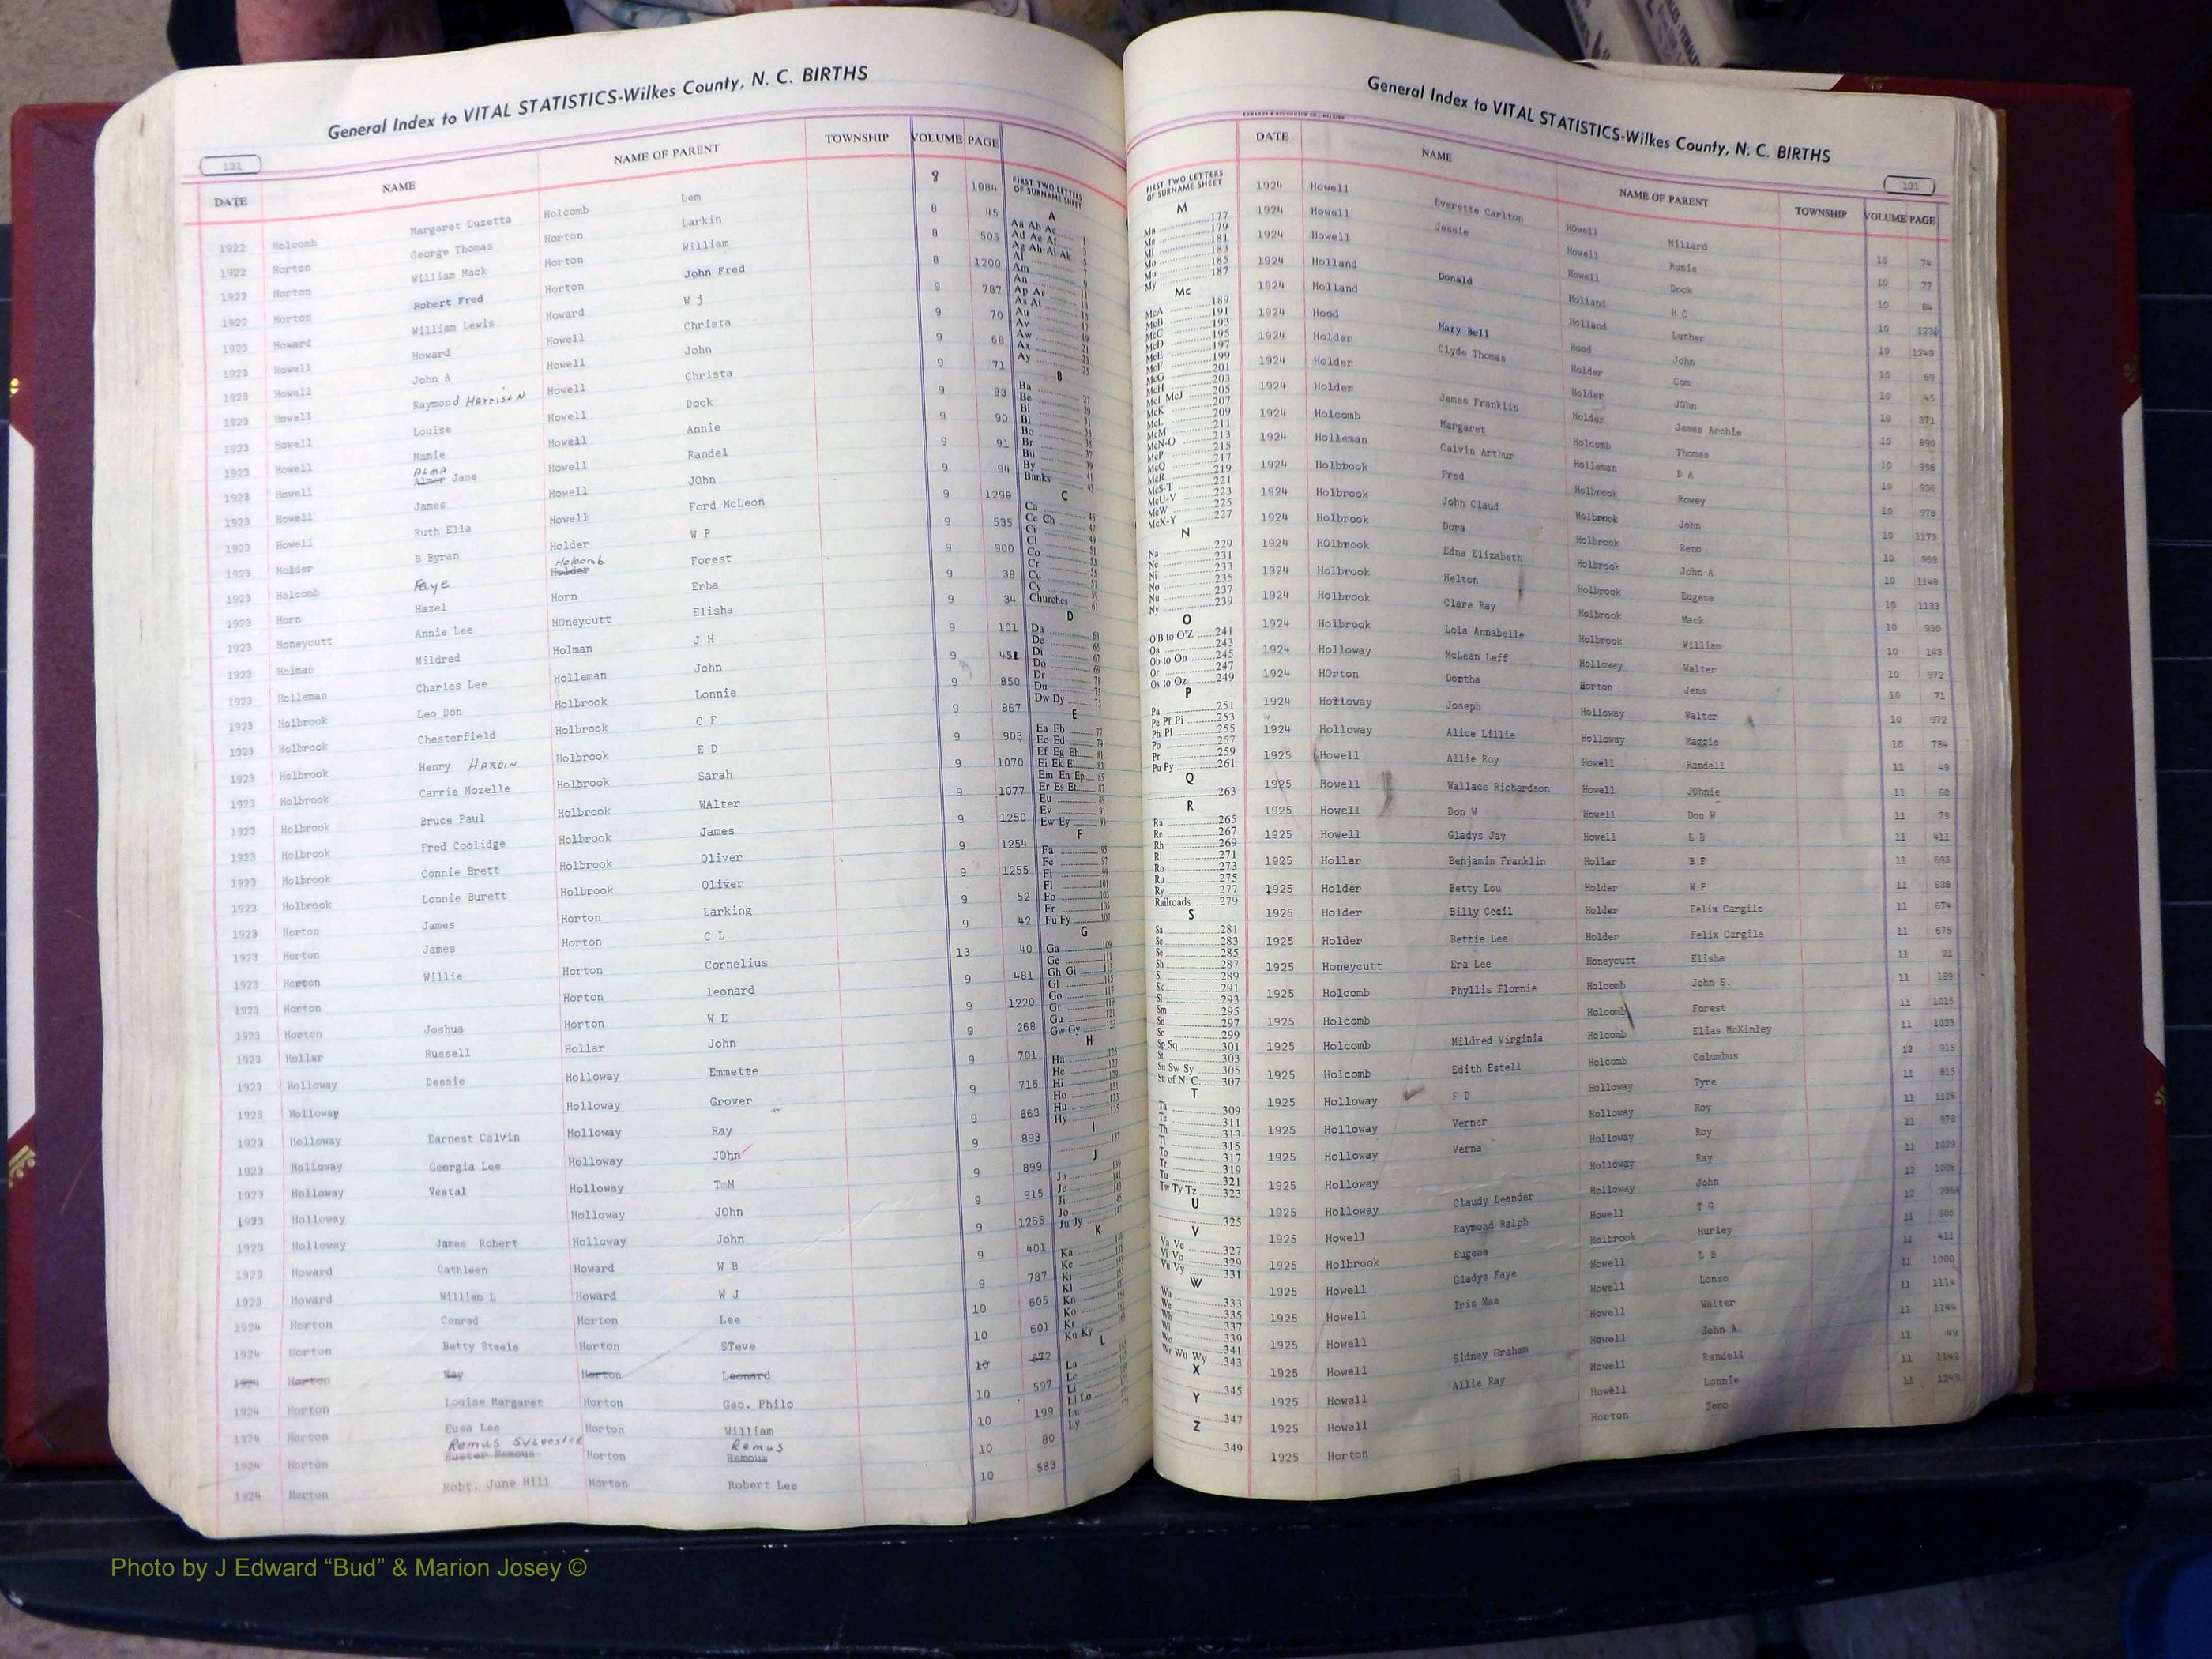 General Index to VITAL STATISTICS-Wilkes County, N. C. BIRTHS
131
DATE NAME NAME OF PARENT TOWNSHIP VOLUME PAGE
1922 Holcomb Margaret Luzetta Holcomb Lem 8 1084
1922 Horton George Thomas Horton Larkin 8 45
1922 Horton William Mack Horton William 8 505
1922 Horton Robert Fred Horton John Fred 8 1200
1923 Howard William Lewis Howard W j 9 787
1923 Howell Howard Howell Christa 9 70
1923 Howell John A Howell John 9 68
1923 Howell Raymond Harrison Howell Christa 9 71
1923 Howell Louise Howell Dock 9 83
1923 Howell Mamie Howell Annie 9 90
1923 Howell Alma Almer Jane Howell Randel 9 91
1923 Howell James Howell JOhn 9 94
1923 Howell Ruth Ella Howell Ford McLeon 9 1290
1923 Holder B Byran Holder W P 9 535
1923 Holcomb Faye Holcomb Holder Forest 9 900
1923 Horn Hazel Horn Erba 9 38
1923 Honeycutt Annie Lee HOneycutt Elisha 9 34
1923 Holman Mildred Holman J H 9 101
1923 Holleman Charles Lee Holleman John 9 451
1923 Holbrook Leo Don Holbrook Lonnie 9 850
1923 Holbrook Chesterfield Holbrook C F 9 867
1923 Holbrook Henry HARDIN Holbrook E D 9 903
1923 Holbrook Carrie Mozelle Holbrook Sarah 9 1070
1923 Holbrook Bruce Paul Holbrook WAlter 9 1077
1923 Holbrook Fred Coolidge Holbrook James 9 1250
1923 Holbrook Connie Brett Holbrook Oliver 9 1254
1923 Holbrook Lonnie Burett Holbrook Oliver 9 1255
1923 Horton James Horton Larking 9 52
1923 Horton James Horton C L 9 42
1923 Horton Willie Horton Cornelius 13 40
1923 Horton Horton leonard 9 481
1923 Horton Joshua Horton W E 9 1220
1923 Hollar Russell Hollar John 9 268
1923 Holloway Dessie Holloway Emmette 9 701
1923 Holloway Holloway Grover 9 716
1923 Holloway Earnest Calvin Holloway Ray 9 863
1923 Holloway Georgia Lee Holloway JOhn 9 893
1923 Holloway Vestal Holloway T M 9 899
1923 Holloway Holloway JOhn 9 915
1923 Holloway James Robert Holloway John 9 1265
1923 Howard Cathleen Howard W B 9 401
1923 Howard William L Howard W J 9 787
1924 Horton Conrad Horton Lee 10 605
1924 Horton Betty Steele Horton STeve 10 601
1924 Horton May Horton Leonard 10 572
1924 Horton Louise Margaret Horton Geo. Philo 10 597
1924 Horton Eusa Lee Horton William 10 199
1924 Horton Remus Sylvester Buster Remous Horton Remus Remous 10 80
1924 Horton Robt. June Hill Horton Robert Lee 10 583
FIRST TWO LETTERS
OF SURNAME SHEET
A
Aa Ab Ac 1
Ad Ae Af 3
Ag Ah Ai Ak 5
Al 7
Am 9
An 11
Ap Ar 13
As At 15
Au 17
Av 19
Aw 21
Ax 23
Ay 25
B
Ba 27
Be 29
Bi 31
Bl 33
Bo 35
Br 37
Bu 39
By 41
Banks 43
C
Ca 45
Ce Ch 47
Ci 49
Cl 51
Co 53
Cr 55
Cu 57
Cy 59
Churches 61
D
Da 63
De 65
Di 67
Do 69
Dr 71
Du 73
Dw Dy 75
E
Ea Eb 77
Ec Ed 79
Ef Eg Eh 81
Ei Ek El 83
Em En Ep 85
Er Es Et 87
Eu 89
Ev 91
Ew Ey 93
F
Fa 95
Fe 97
Fi 99
Fl 101
Fo 103
Fr 105
Fu Fy 107
G
Ga 109
Ge 111
Gh Gi 113
Gl 115
Go 117
Gr 119
Gu 121
Gw Gy 123
H
Ha 125
He 127
Hi 129
Ho 131
Hu 133
Hy 135
I
137
J
Ja 139
Je 141
Ji 143
Jo 145
Ju Jy 147
K
Ka 149
Ke
Ki
Kl
Kn
Ko
Kr
Ku Ky
L
La
Le
Li
Ll Lo
Lu
Ly 175
General Index to VITAL STATISTICS-Wilkes County, N. C. BIRTHS
131
FIRST TWO LETTERS
OF SURNAME SHEET
M
Ma 177
Me 179
Mi 181
Mo 183
Mu 185
My 187
Mc
McA 189
McB 191
McC 193
McD 195
McE 197
McF 199
McG 201
McH 203
McI McJ 205
McK 207
McL 209
McM 211
McN-O 213
McP 215
McQ 217
McR 219
McS-T 221
McU-V 223
McW 225
McX-Y 227
N
Na 229
Ne 231
Ni 233
No 235
Nu 237
Ny 239
O
O'B to O'Z 241
Oa 243
Ob to On 245
Or 247
Os to Oz 249
P
Pa 251
Pe Pf Pi 253
Ph Pl 255
Po 257
Pr 259
Pu Py 261
Q
263
R
Ra 265
Re 267
Rh 269
Ri 271
Ro 273
Ru 275
Ry 277
Railroads 279
S
Sa 281
Sc 283
Se 285
Sh 287
Si 289
Sk 291
Sl 293
Sm 295
Sn 297
So 299
Sp Sq 301
St 303
Su Sw Sy 305
St. of N. C. 307
T
Ta 309
Te 311
Th 313
Ti 315
To 317
Tr 319
Tu 321
Tw Ty Tz 323
U
325
V
Va Ve 327
Vi Vo 329
Vu Vy 331
W
Wa 333
We 335
Wh 337
Wi 339
Wo 341
Wr Wu Wy 343
X
345
Y
347
Z
349
DATE NAME NAME OF PARENT TOWNSHIP VOLUME PAGE
1924 Howell Everette Carlton HOwell Millard 10 74
1924 Howell Jessie Howell Runie 10 77
1924 Howell Howell Dock 10 84
1924 Holland Donald Holland H C 10 1236
1924 Holland Holland Luther 10 1249
1924 Hood Mary Bell Hood John 10 69
1924 Holder Clyde Thomas Holder Com 10 45
1924 Holder Holder JOhn 10 371
1924 Holder James Franklin Holder James Archie 10 890
1924 Holcomb Margaret Holcomb Thomas 10 956
1924 Holleman Calvin Arthur Holleman D A 10 936
1924 Holbbook Fred Holbrook Rowey 10 978
1924 Holbrook John Claud Holbrook John 10 1173
1924 Holbrook Dora Holbrook Reno 10 969
1924 HOlbrook Edna Elizabeth Holbrook John A 10 1148
1924 Holbrook Helton Holbrook Eugene 10 1133
1924 Holbrook Clare Ray Holbrook Mack 10 930
1924 Holbrook Lola Annabelle Holbrook William 10 143
1924 Holloway McLean Leff Holloway Walter 10 972
1924 HOrton Dortha Horton Jens 10 71
1924 Holloway Joseph Holloway Walter 10 972
1924 Holloway Alice Lillie Holloway Maggie 10 784
1925 Howell Allie Roy Howell Randell 11 49
1925 Howell Wallace Richardson Howell JOhnie 11 60
1925 Howell Don W Howell Don W 11 79
1925 Howell Gladys Jay Howell L B 11 411
1925 Hollar Benjamin Franklin Hollar B F 11 693
1925 Holder Betty Lou Holder W P 11 638
1925 Holder Billy Cecil Holder Felix Cargile 11 674
1925 Holder Bettie Lee Holder Felix Cargile 11 675
1925 Honeycutt Era Lee Honeycutt Elisha 11 21
1925 Holcomb Phyllis Flornie Holcomb John S. 11 189
1925 Holcomb Holcomb Forest 11 1015
1925 Holcomb Mildred Virginia Holcomb Elias McKinley 11 1023
1925 Holcomb Edith Estell Holcomb Columbus 12 915
1925 Holloway F D Holloway Tyre 11 815
1925 Holloway Verner Holloway Roy 11 1126
1925 Holloway Verna Holloway Roy 11 978
1925 Holloway Holloway Ray 11 1029
1925 Holloway Claudy Leander Holloway John 12 1006
1925 Howell Raymond Ralph Howell T G 12
1925 Holbrook Eugene Holbrook Hurley 11 905
1925 Howell Gladys Faye Howell L B 11 411
1925 Howell Iris Mae Howell Lonzo 11 1000
1925 Howell Howell Walter 11 1114
1925 Howell Sidney Graham Howell John A. 11 1144
1925 Howell Allie Ray Howell Randell 11 49
1925 Howell Howell Lonnie 11 1149
1925 Horton Horton Zeno 11 1249
Photo by J Edward “Bud” & Marion Josey ©